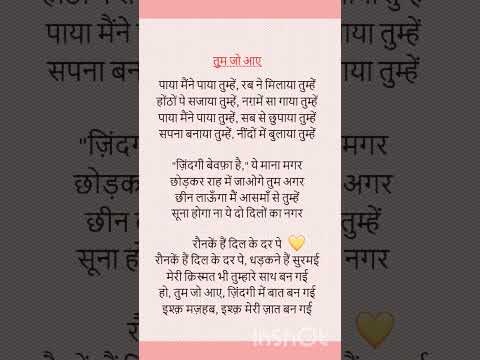 तुम जो आए
पाया मैंने पाया तुम्हें, रब ने मिलाया तुम्हें
होंठों पे सजाया तुम्हें, नग़में सा गाया तुम्हें
पाया मैंने पाया तुम्हें, सब से छुपाया तुम्हें
सपना बनाया तुम्हें, नींदों में बुलाया तुम्हें
"ज़िंदगी बेवफ़ा है," ये माना मगर
छोड़कर राह में जाओगे तुम अगर
छीन लाऊँगा मैं आसमाँ से तुम्हें
सूना होगा ना ये दो दिलों का नगर
रौनकें हैं दिल के दर पे
रौनकें हैं दिल के दर पे, धड़कने हैं सुरमई
मेरी क़िस्मत भी तुम्हारे साथ बन गई
हो, तुम जो आए, ज़िंदगी में बात बन गई
इश्क़ मज़हब, इश्क़ मेरी ज़ात बन गई
InShOt